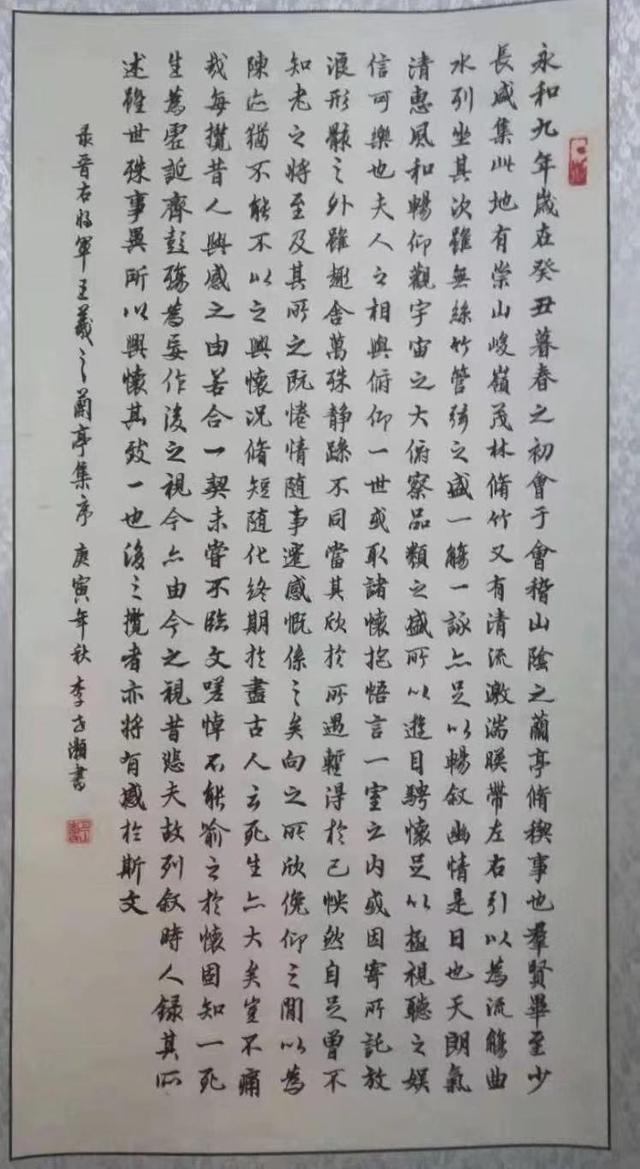 永和九年歲在癸丑暮春之初會于會稽山陰之蘭亭脩稧事也羣賢畢至少
長咸集此地有崇山峻嶺茂林脩竹又有清流激湍暎帶左右引以為流觴曲
水列坐其次雖無絲竹管弦之盛一觴一詠亦足以暢叙幽情是日也天朗氣
清惠風和暢仰觀宇宙之大俯察品類之盛所以遊目騁懷足以極視聽之娛
信可樂也夫人之相與俯仰一世或取諸懷抱悟言一室之内或因寄所託放
浪形骸之外雖趣舍萬殊静躁不同當其欣於所遇暫得於己怏然自足曾不
知老之將至及其所之既惓情隨事遷感慨係之矣向之所欣俛仰之閒以為
陳迹猶不能不以之興懷況脩短隨化終期於盡古人云死生亦大矣豈不痛
哉每攬昔人興感之由若合一契未嘗不臨文嗟悼不能喻之於懷固知一死
生為虛誕齊彭殤為妄作後之視今亦由今之視昔悲夫故列叙時人録其所
述雖世殊事異所以興懷其致一也後之攬者亦將有感於斯文
录晋右将軍王羲之蘭亭集序 庚寅年秋 李 瀕書